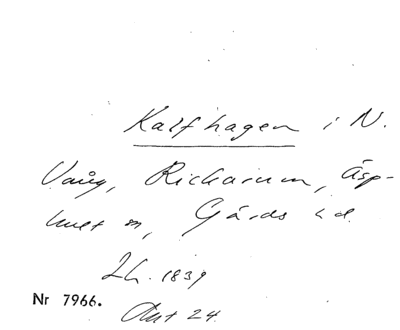 Kalfhagen i N.
Vång, Richarum, Äsp-
hult m, Gärds hd
Lh. 1839
Nr 7966.
Akt 24